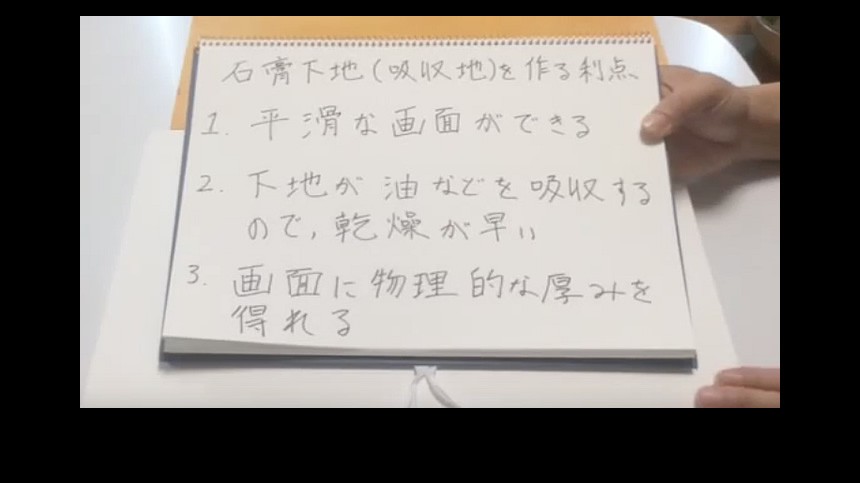 石膏下地(吸収地)を作る利点、
1. 平滑な画面ができる
2. 下地が油などを吸収する
ので,乾燥が早い
3. 画面に物理的な厚みを
得れる